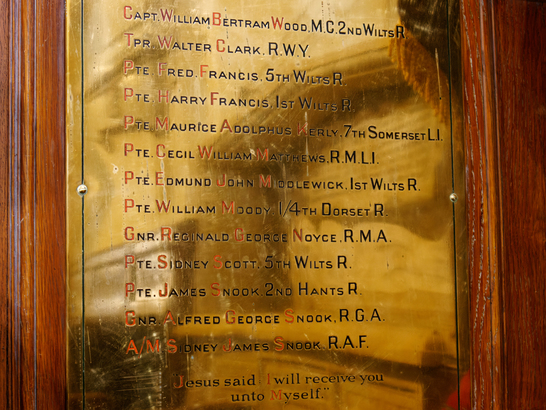 Capt. William Bertram Wood, M.C. 2nd Wilts R.
Tpr. Walter Clark. R.W.Y.
Pte. Fred. Francis. 5th Wilts R.
Pte. Harry Francis, 1st Wilts R.
Pte Maurice Adolphus Kerly, 7th Somerset L.I.
Pte. Cecil William Matthews, R.M.L.I.
Pte. Edmund John Middlewick, 1st Wilts R.
Pte. William Moody. 1/4th Dorset R.
Gnr. Reginald George Noyce, R.M.A.
Pte. Sidney Scott, 5th Wilts R.
Pte. James Snook. 2nd Hants R.
Gnr. Alfred George Snook, R.G.A.
A/M Sidney James Snook. R.A.F.
Jesus said "I will receive you
unto Myself."